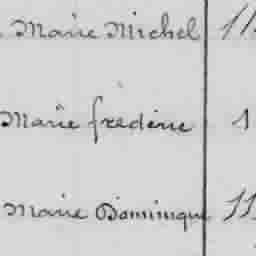 Marie Michel 11
Marie frédéric 1
Marie Dominique 11